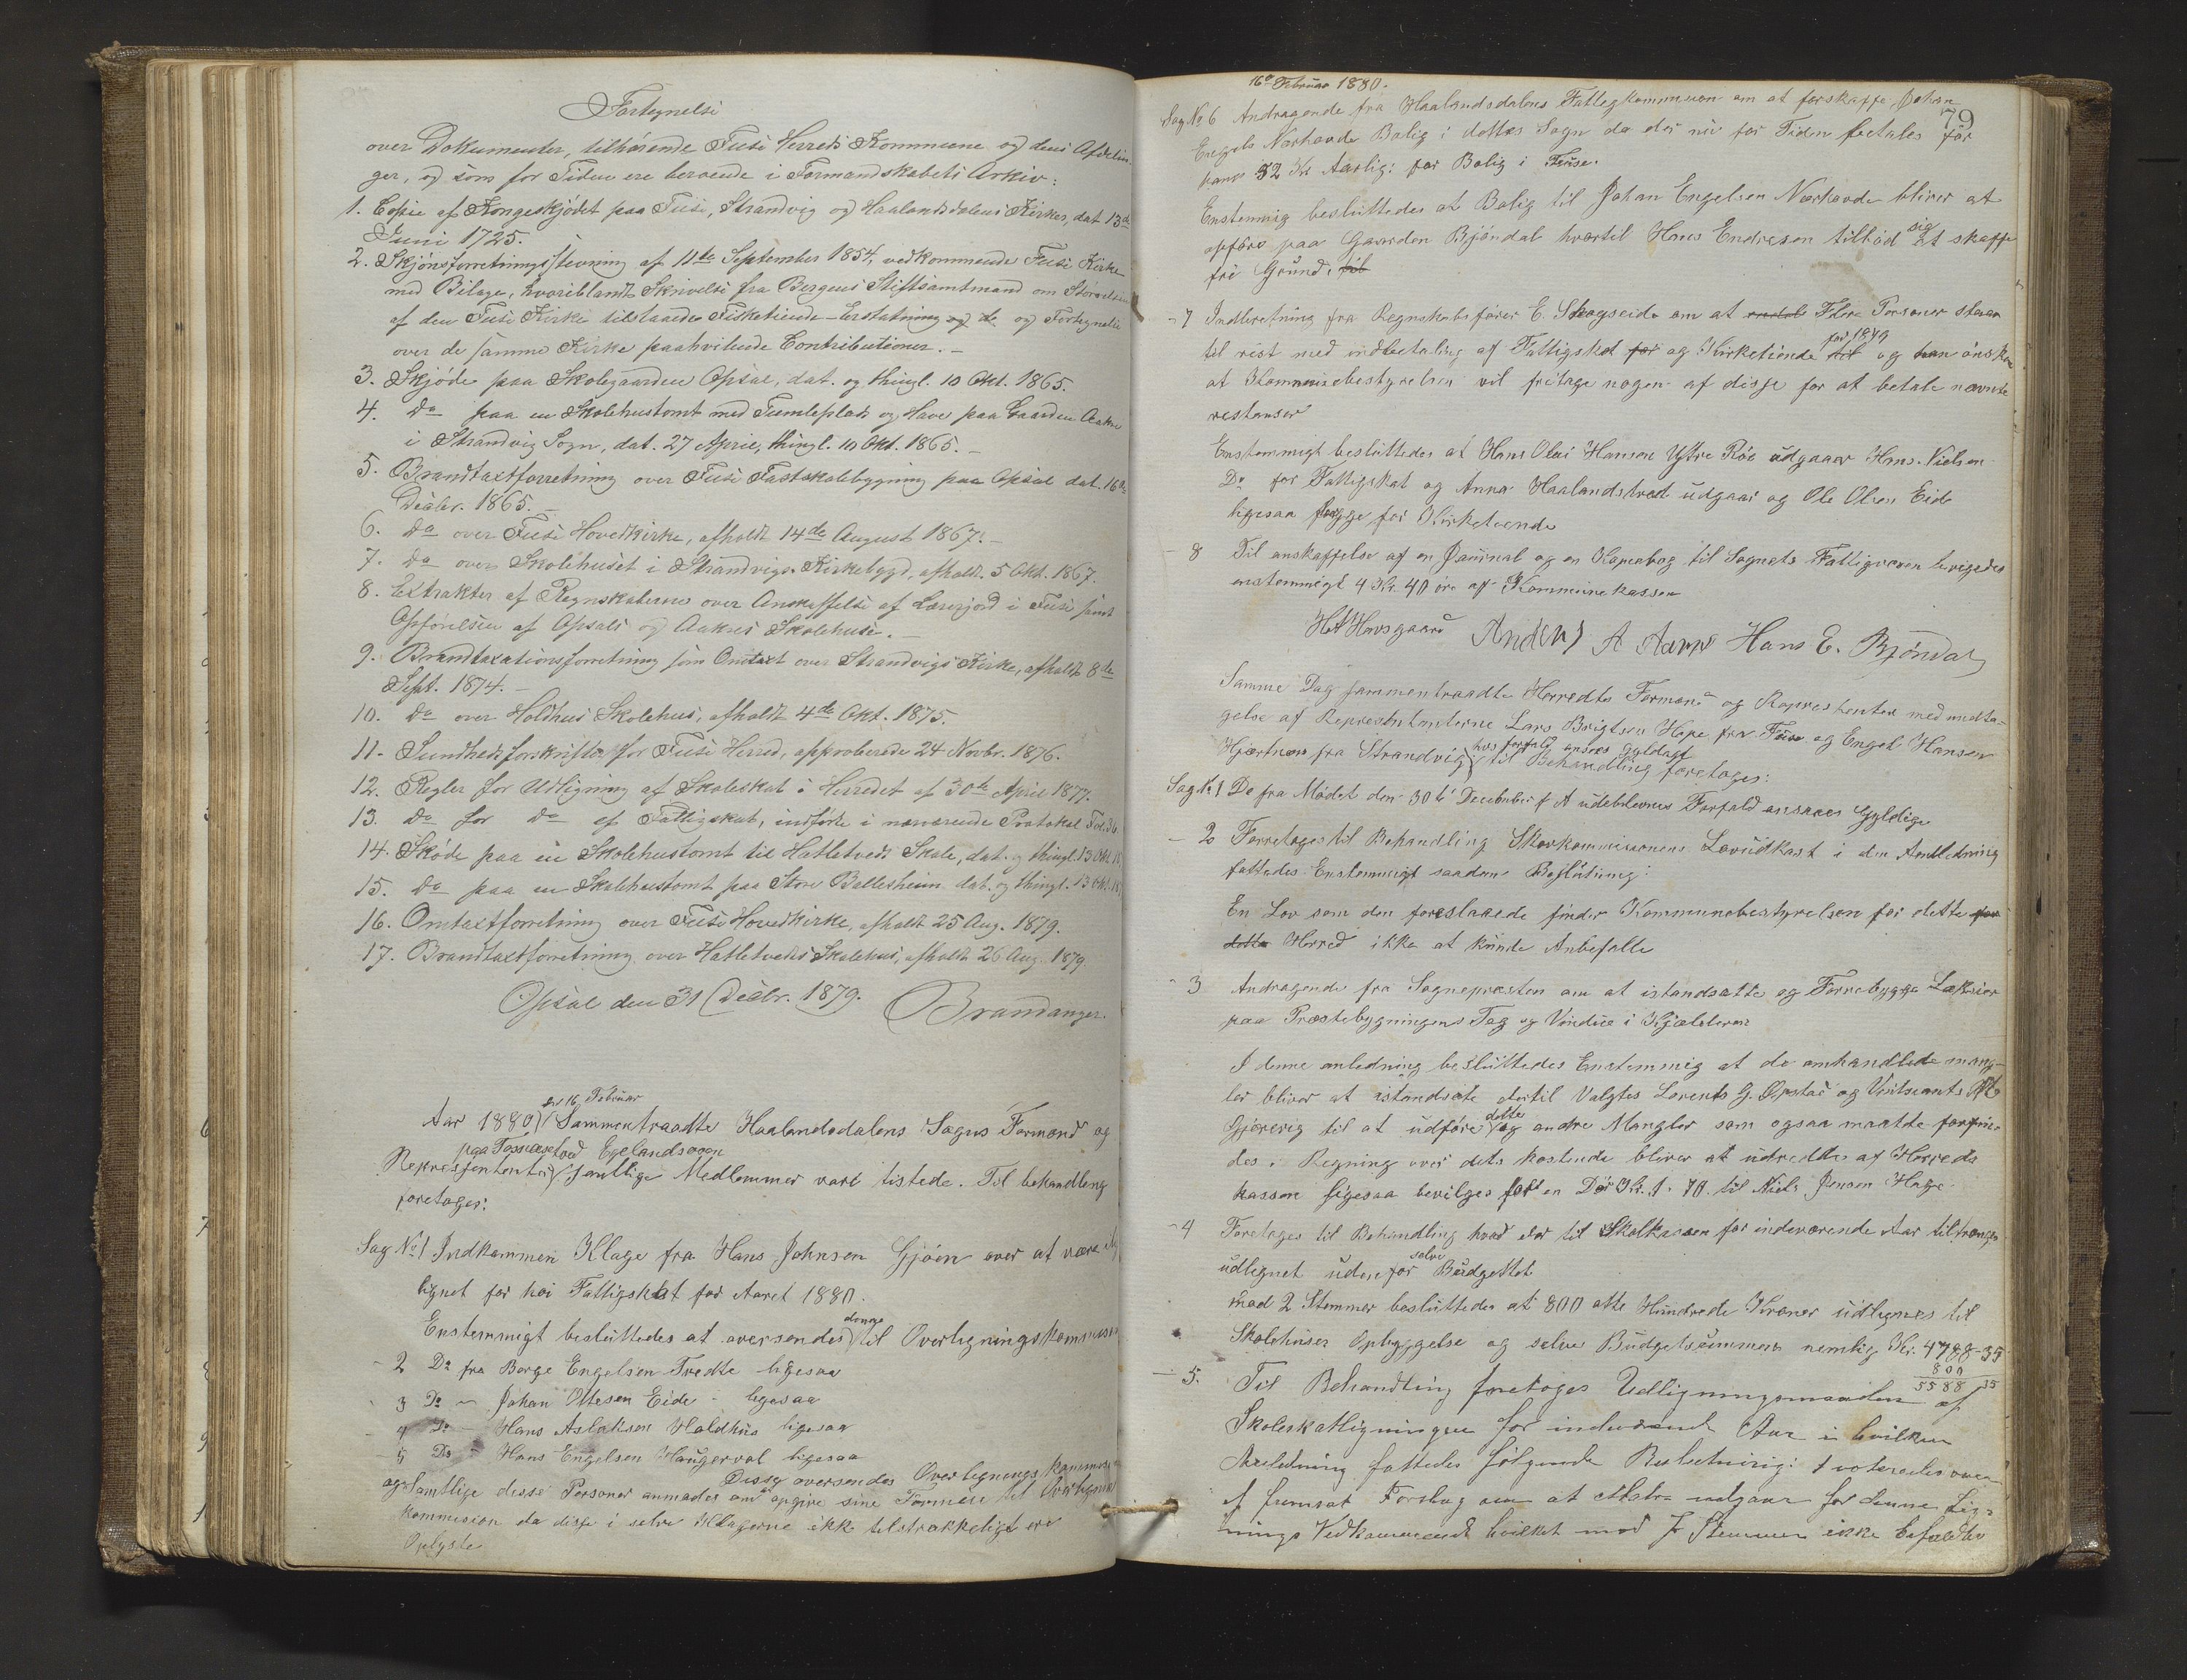 Fortegnelse
over Dokumenter, tilhørende Fuse Herreds Kommune og dens Afdelin-
ger, og som for Tiden ere beroende i Formandskabets Arkiv:
1. Copie af Kongeskjødet paa Fuse, Strandvig og Haalandsdalens Kirker, dat. 13de
Juni 1725.
2. Skjønsforretningsstevning af 11te September 1854, vedkommende Fuse Kirke
med Bilage, hvoriblandt Skrivelse fra Bergens Stiftsamtmand om Størrelsen
af den Fuse Kirke tilstaaede Fisketiende-Erstatning og de og Fortegnelse
over de samme Kirke paahvilende Contributioner. -
3. Skjøde paa Skolegaarden Opsal, dat. og thingl. 10 Okt. 1865.
4. Do paa en Skolehustomt med Tumleplads og Have paa Gaarden Aakre
i Strandvig Sogn, dat. 27 April, thingl. 10 Okt. 1865. -
5. Brandtaxtforretning over Fuse Fastskolebygning paa Opsal dat. 16de
Decbr. 1865. -
6. Do over Fuse Hovedkirke, afholdt 14de August 1867. -
7. Do over Skolehuset i Strandvigs Kirkebygd, afholdt 5 Okt. 1867.
8. Extrakter af Regnskaberne over Anskaffelse af Lærerjord i Fuse samt
Opførelsen af Opsals og Aakres Skolehuse. -
9. Brandtaxationsforretning som Omtaxt over Strandvigs Kirke, afholdt 8de
Sept. 1874. -
10. Do over Holdhus Skolehus, afholdt 4de Okt. 1875.
11. Sundhedsforskrifter for Fuse Herred, approberede 24 Novbr. 1876.
12. Regler for Udligning af Skoleskat i Herredet af 30te April 1877.
13. Do for Do af Fattigskat, indførte i nærværende Protokol Fol.
14. Skøde paa en Skolehustomt til Hatletveds Skole, dat. og thingl. 13 Okt.
15. Do paa en Skolehustomt paa Store Ballesheim dat. og thingl. 13 Okt.
16. Omtaxtforretning over Fuse Hovedkirke, afholdt 25 Aug. 1879.
17. Brandtaxtforretning over Hatletveds Skolehus, afholdt 26 Aug. 1879.
Opsal den 31 Decbr. 1879. Brandanger.
den 16 Februar
Aar 1880 Sammentraadte Haalandsdalens Sogns Formænd og
paa Tøssæstad Egelandsogen
Repræsentanter samtlige Medlemmer vare tistede. Til behandling
foretages:
Sag No 1 Indkommen Klage fra Hans Johnsen Gjøen over at være
lignet for høi Fattigskat for Aaret 1880.
Enstemmigt besluttedes at oversendes denne til Overligningskommission
- 2 Do fra Børge Engelsen Tvedte ligesaa
3 Do - Johan Ottesen Eide - ligesaa
- 4 Do - Hans Aslaksen Holdhus ligesaa
- 5 Do - Hans Engelsen Haugervol ligesaa
Disse oversendes Overlignings Kommission
og samtlige disse Personer anmodes om at opgive sine Formuer til Overlignings
kommision da disse i selve Klagerne ikke tilstrækkeligt ere
Oplyste
16de Februar 1880.
79
Sag No 6 Andragende fra Haalandsdalens Fattigkommision om at forskaffe Johan
Engels. Nørhovde Bolig i dettes Sogn da der nu for Tiden betales for
ham 32 Kr Aarlig: for Bolig i Fuse.
Enstemmig besluttedes at Bolig til Johan Engelsen Nørhovde bliver at
opføre paa Gaarden Bjøndal hvortil Hans Endresen tilbød sig at skaffe
fri Grund. til
- 7 Indberetning fra Regnskabsfører E. Skogseide om at Flere Personer staar
til rest med indbetaling af Fattigskat for og Kirketiende for 1879 og han ønsker
at Kommunebestyrelsen vil fritage nogen af disse for at betale nævnte
restanser
Enstemmigt besluttedes at Hans Olai Hansen Ytre Røe udgaaer Hans. Nielsen
Do for Fattigskat og Anna Haalandstved udgaar og Ole Olsen Eide
ligesaa begge for Kirketiende
- 8 Til anskaffelse af en Journal og en Kopiebog til Sognets Fattigvæsen bevigedes
enstemmigt 4 Kr. 40 øre af Kommunekassen
H. Hovsgaard Anders A Hans E. Bjöndal
Samme Dag sammentraadte Herredts Formænd og Repræsentanter med undta-
gelse af Repræsentanterne Lars Brigtsen Hope fra Fuse og Engel Hansen
Hjartnæs fra Strandvig hvis forfald ansees gyldigt til Behandling foretages:
Sag No 1 De fra Mødet den 30te December f A udeblevnes Forfald ansaaes Gyldige
- 2 Forretages til Behandling Skovkommissionens Lovudkast i den Anledning
fattedes Enstemmigt saadan Beslutning:
En Lov som den foreslaaede finder Kommunebestyrelsen for dette for
dette Herred ikke at kunde Anbefalle
- 3 Andragende fra Sognepresten om at istandsætte og Forrebygge Lækkier
paa Præstebygningens Tag og Vindue i Kjælderen
I denne anledning besluttedes Enstemmig at de omhandlede mang-
ler bliver at istandsæte dertil Valgtes Lorents G. Opstad og Vintsents
Gjørerig til at udføre dette og andre Mangler som ogsaa maatte forefin-
des. Regning over dets kostende bliver at udredtes af Herreds
kassen ligesaa bevilges for en Dør Kr. 1. 70 til Niels Jensen Hage.
- 4 Foretages til Behandling hvad der til Skolkassen for indeværende Aar tiltrænges
udlignet udenfor selve Budgettet
mod 2 Stemmer besluttedes at 800 otte Hundrede Kroner udlignes til
Skolehuses Opbyggelse og selve Budgetsummen nemlig Kr. 4788-35
800
5588 35
- 5. Til Behandling foretages Udligningsmaaden af
Skoleskatligningen for indeværende Aar i hvilken
Anledning fattedes følgende Beslutning: voteredes over
et fremsat Forslag om at udgaar for denne Lig-
nings Vedkommende hvilket mod Stemmer ikke